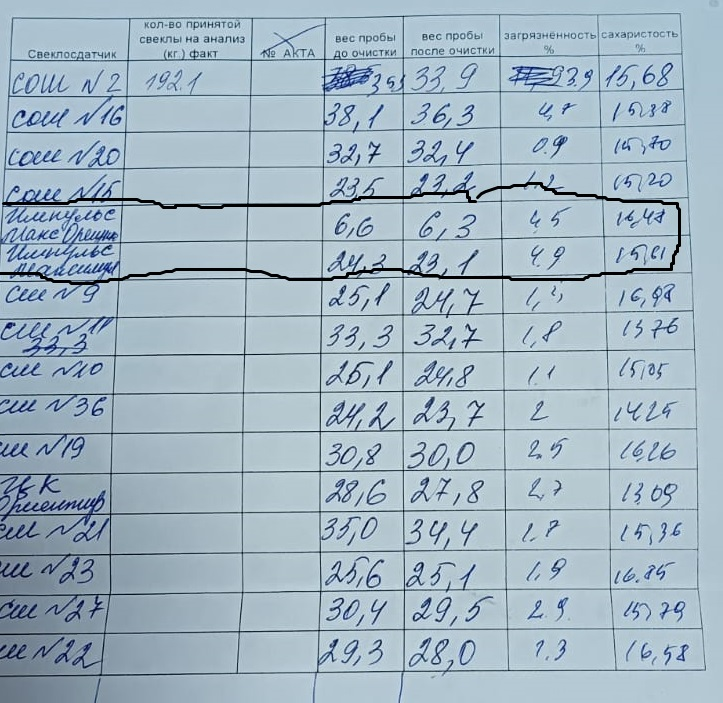 Свеклосдатчик кол-во принятой свеклы на анализ (кг.) факт № АКТА вес пробы до очистки вес пробы после очистки загрязнённость % сахаристость %
СОШ N2 192.1 33,9 3.9 15,68
СОШ N16 38,1 36,3 4,7 15,38
СОШ N20 32,7 32,4 0.9 15,70
СОШ N15 23,5 23,2 1,2 15,20
Импульс Макс 6,6 6,3 4,5
Импульс 24,3 23,1 4.9 15,61
СШ N9 25,1 24,7 16,98
СШ N11 33,3 33,3 32,7 1,8 13,76
СШ N10 25,1 24,8 1.1 15,05
СШ N36 24,2 23,7 2 14.25
СШ N19 30,8 30,0 2.5 16.26
Ориентир 28,6 27,8 2,7 13,09
СШ N21 35,0 34,4 1.7 15,36
СШ N23 25,6 25,1 1,9 16.85
СШ N27 30,4 29,5 2.9 15,79
СШ N22 29,3 28,0 16,58